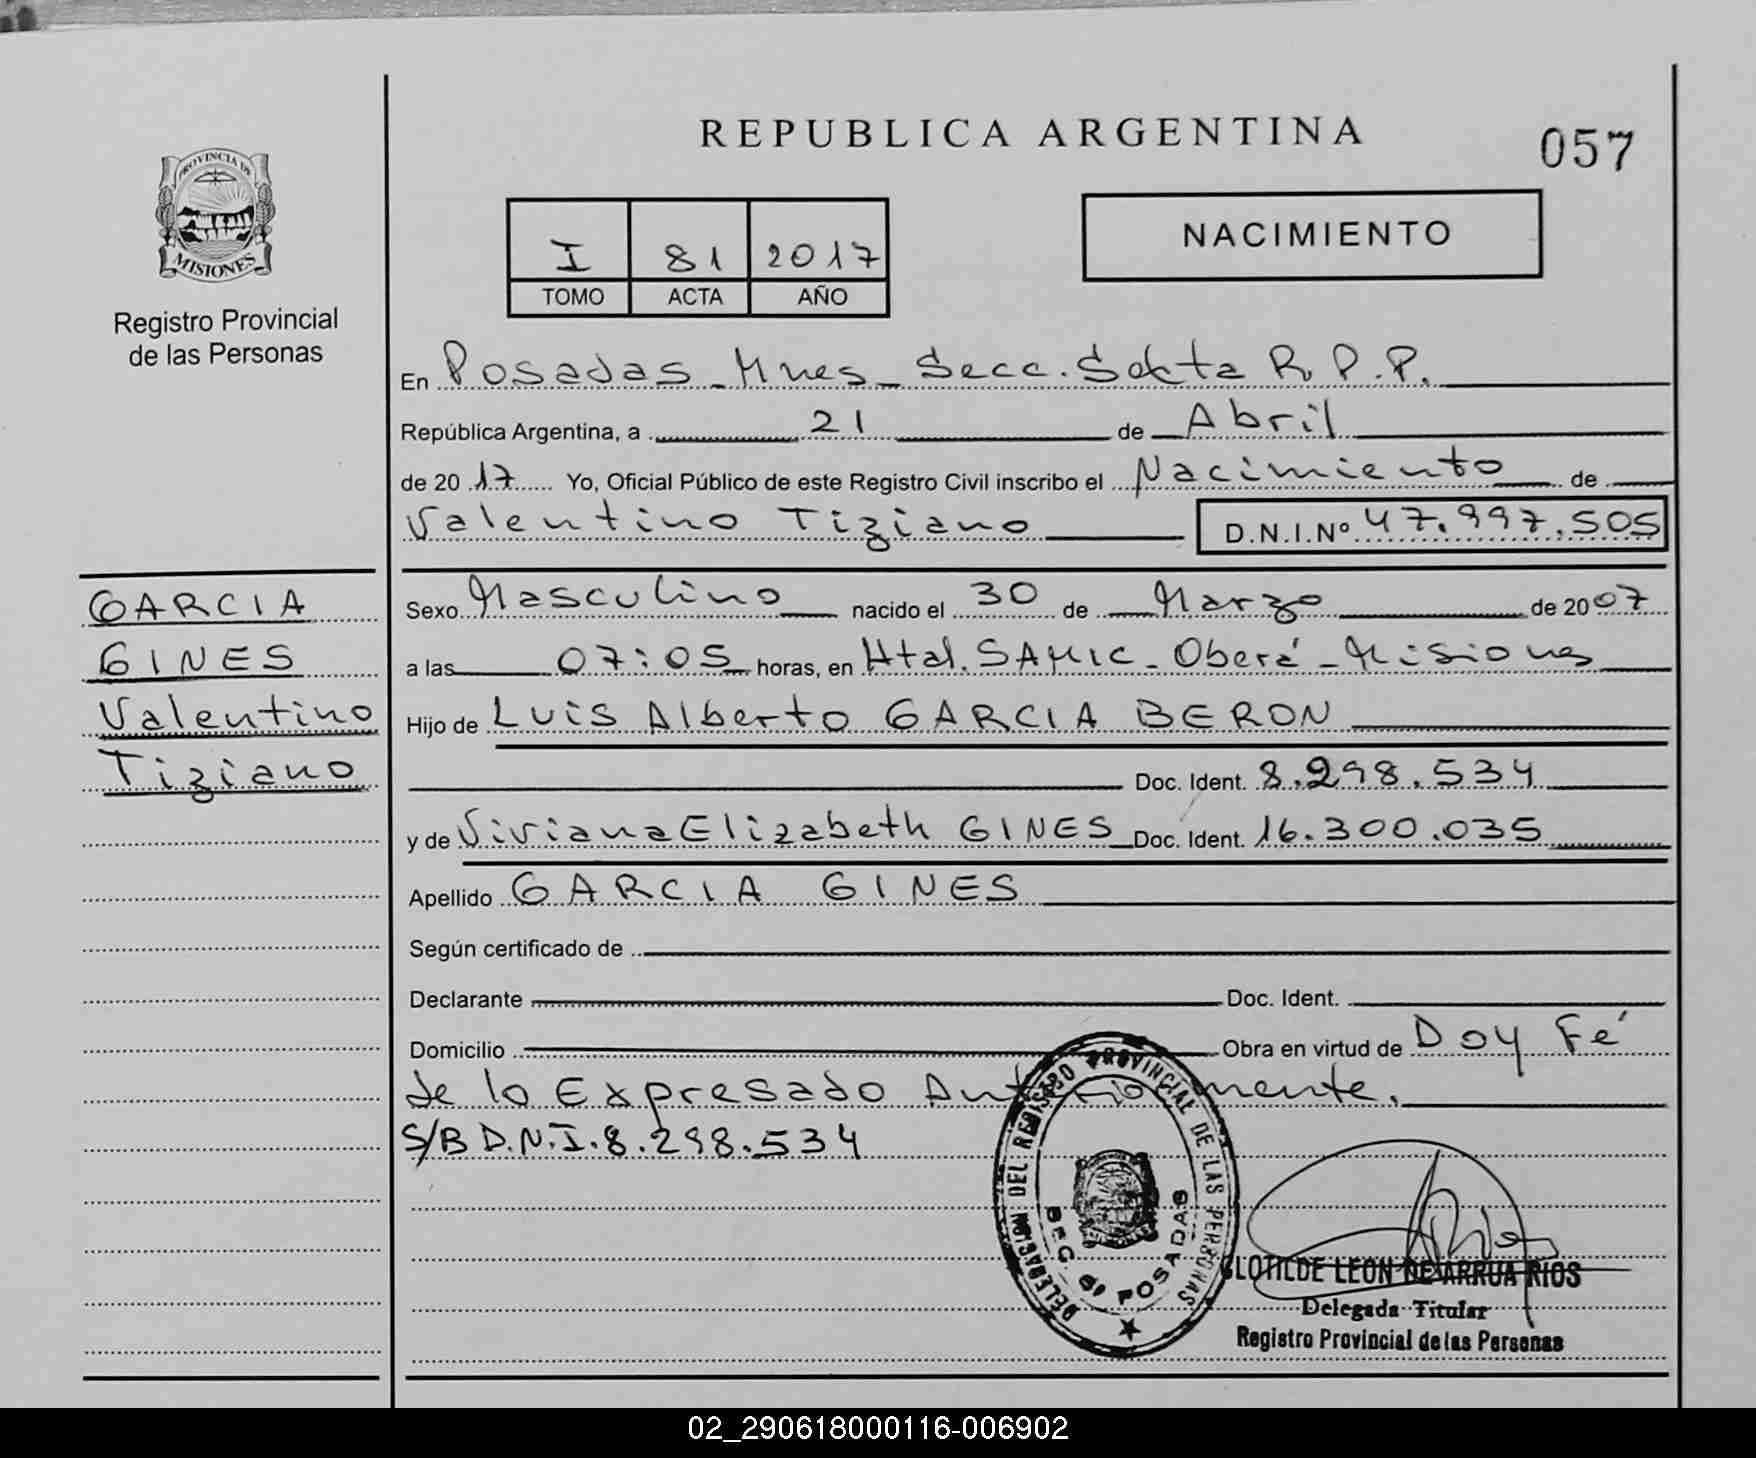 REPUBLICA ARGENTINA
057
PROVINCIA DE
MISIONES
Registro Provincial
de las Personas
I 81 2017
TOMO ACTA AÑO
NACIMIENTO
En Posadas - Mnes - Secc. Sexta R.P.P.
República Argentina, a 21 de Abril
de 2017 Yo, Oficial Público de este Registro Civil inscribo el Nacimiento de
Valentino Tiziano D.N.I.Nº 47.997.505
GARCIA
GINES
Valentino
Tiziano
Sexo Masculino nacido el 30 de Marzo de 2007
a las 07:05 horas, en Htal. SAMIC - Oberá - Misiones
Hijo de Luis Alberto GARCIA BERON
Doc. Ident. 8.298.534
y de Viviana Elizabeth GINES Doc. Ident. 16.300.035
Apellido GARCIA GINES
Según certificado de
Declarante Doc. Ident.
Domicilio Obra en virtud de Doy Fé
de lo Expresado Anteriormente.
S/B D.N.I. 8.298.534
DELEGACION DEL REGISTRO PROVINCIAL DE LAS PERSONAS
SEC. 6ª POSADAS
CLOTILDE LEON DE ARRUA RIOS
Delegada Titular
Registro Provincial de las Personas
02_290618000116-006902